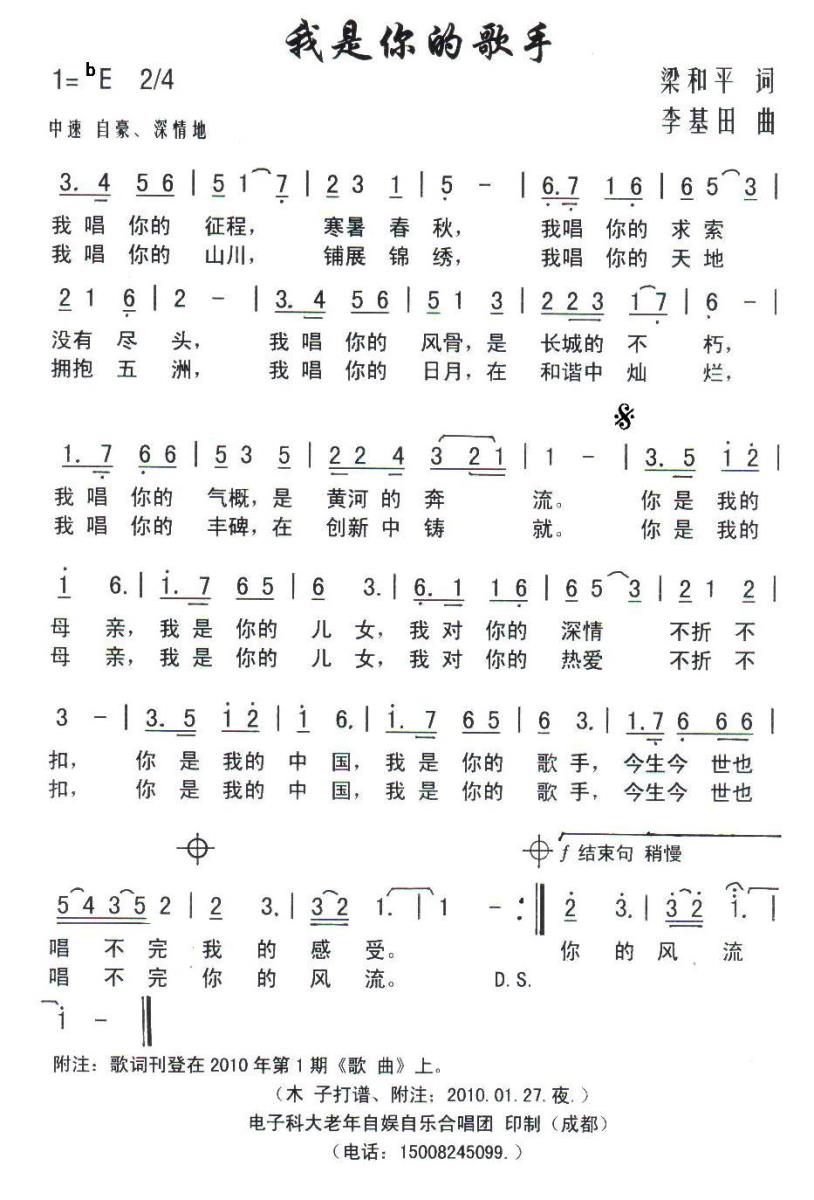 我是你的歌手
1=bE 2/4
梁和平 词
中速 自豪、深情地
李基田 曲
3. 4 5 6 | 5 1 7 | 2 3 1 | 5 - | 6.7 1 6 | 6 5 3 |
我 唱 你的 征程， 寒暑 春 秋， 我唱 你的 求 索
我 唱 你的 山川， 铺展 锦 绣， 我唱 你的 天 地
2 1 6 | 2 - | 3. 4 5 6 | 5 1 3 | 2 2 3 1 7 | 6 - |
没有 尽 头， 我 唱 你的 风骨，是 长城的 不 朽，
拥抱 五 洲， 我 唱 你的 日月，在 和谐中 灿 烂，
1. 7 6 6 | 5 3 5 | 2 2 4 3 2 1 | 1 - | 3. 5 1 2 |
我 唱 你的 气概，是 黄河 的 奔 流。 你 是 我的
我 唱 你的 丰碑，在 创新 中 铸 就。 你 是 我的
1 6. | 1. 7 6 5 | 6 3. | 6. 1 1 6 | 6 5 3 | 2 1 2 |
母 亲，我 是 你的 儿 女，我 对 你的 深情 不折 不
母 亲，我 是 你的 儿 女，我 对 你的 热爱 不折 不
3 - | 3. 5 1 2 | 1 6. | 1. 7 6 5 | 6 3. | 1.7 6 6 6 |
扣， 你 是 我的 中 国，我 是 你的 歌 手，今生今 世也
扣， 你 是 我的 中 国，我 是 你的 歌 手，今生今 世也
f 结束句 稍慢
5 4 3 5 2 | 2 3. | 3 2 1. | 1 - :‖ 2 3. | 3 2 1. |
唱 不 完 我 的 感 受。 你 的 风 流
唱 不 完 你 的 风 流。 D.S.
1 - ‖
附注：歌词刊登在2010年第1期《歌 曲》上。
（木 子打谱、附注；2010.01.27.夜.）
电子科大老年自娱自乐合唱团 印制（成都）
（电话：15008245099.）